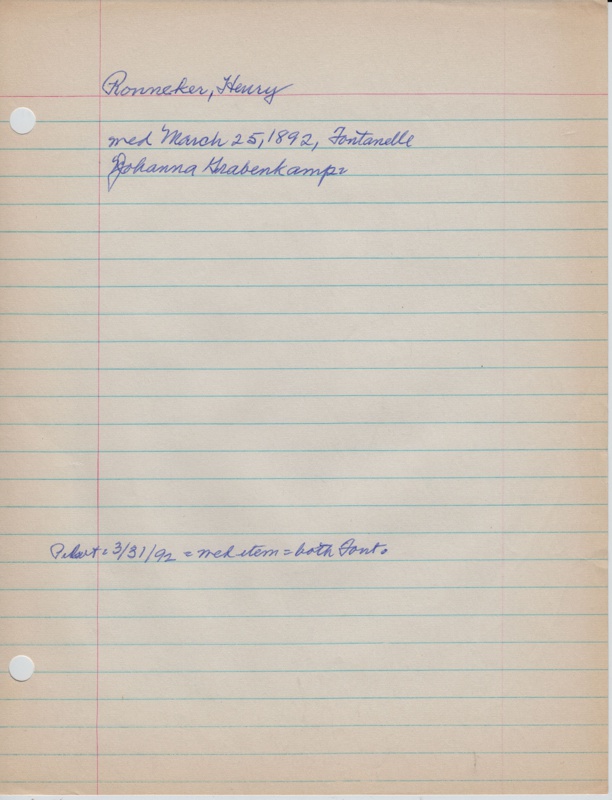 Ronneker, Henry
wed March 25, 1892, Fontanelle
Johanna Grabenkamp=
3/31/92 = wed item = both Font.